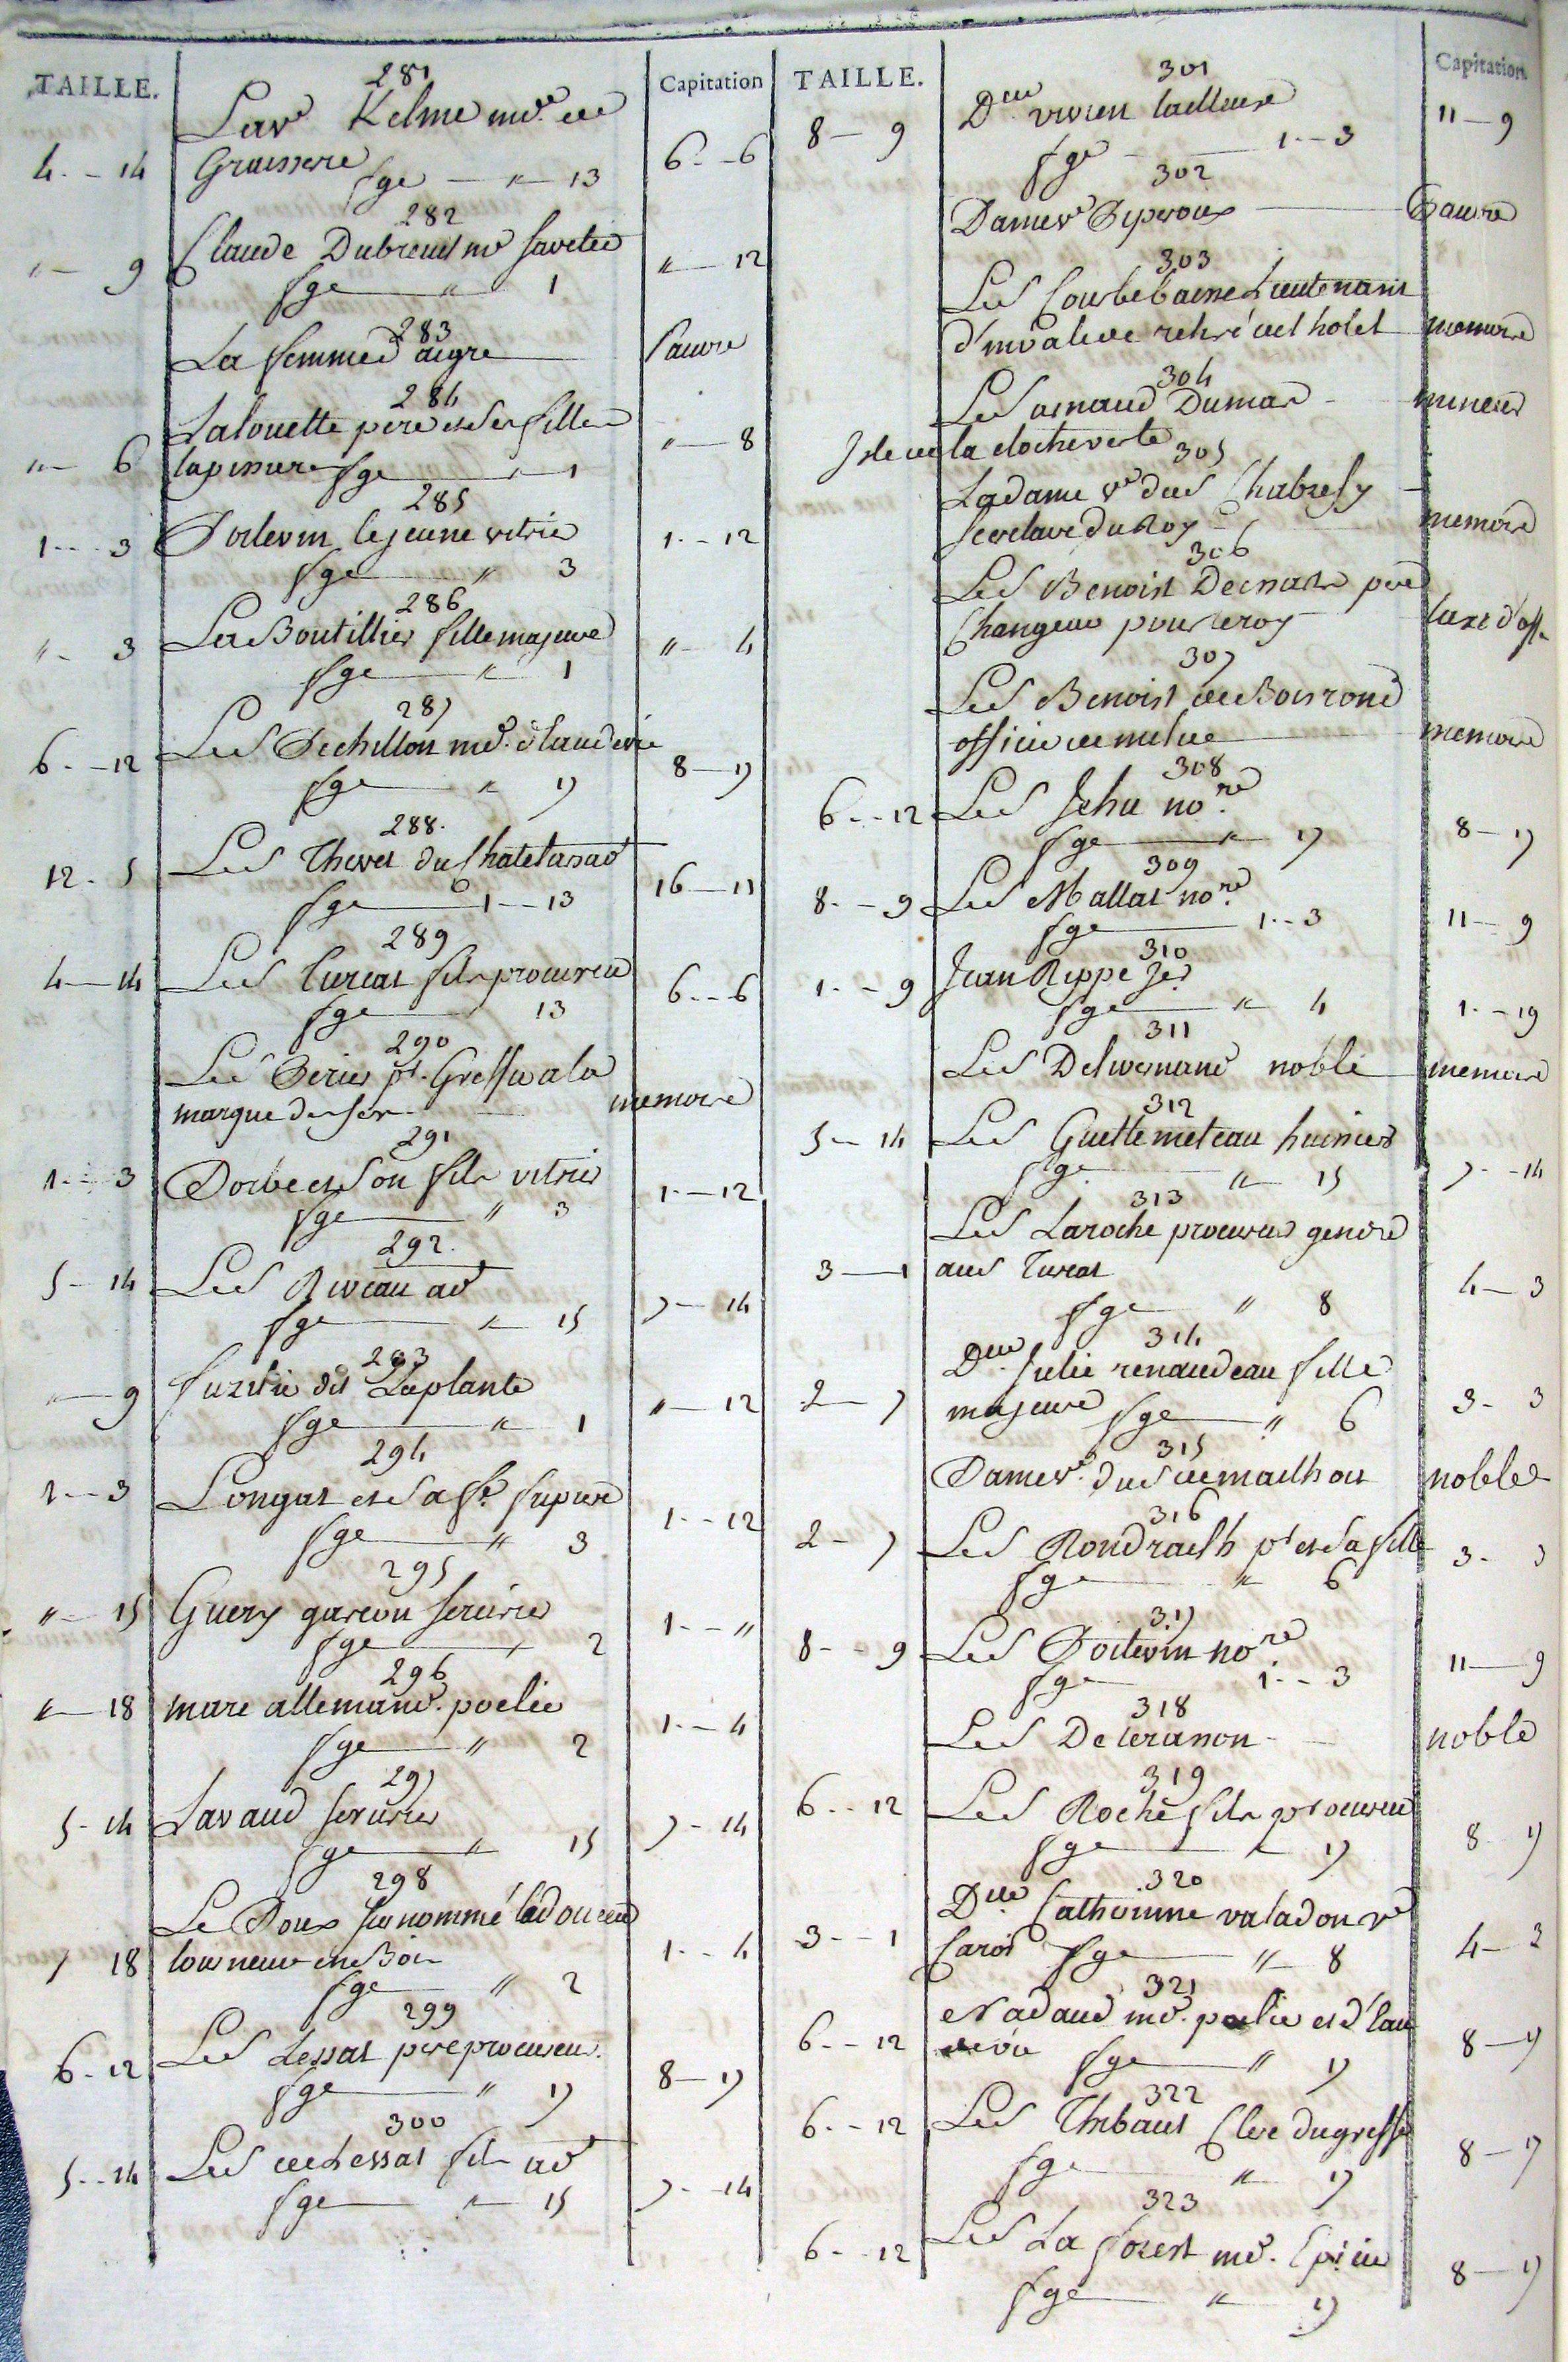 TAILLE. Capitation
281
La ve Kelme mde de
4 - 14 Graisserie fge — " — 13 6 - 6
282
Claude Dubreuil md savetier
" — 9 fge — " 1 " — 12
283
La femme d'aigre Pauvre
284
Lalouette pere et ses filles
" — 6 tapissiere fge — " — 1 " — 8
285
1 - 3 Poitevin le jeune vitrier 1 - 12
fge — " 3
286
" - 3 La Boutillier fille majeure " - 4
fge — " 1
287
6 - 12 Le Sr Pechillon md. d'eau de vie
fge — " 17 8 — 17
288.
12 - 5 Le Sr Thevet du Chatelars avt 16 — 11
fge — 1 — 13
289
4 — 14 Le Sr Turcat fils procureur 6 - 6
fge — 13
290
Le Sr Perier pt. Greffier a la
marque des fers memoire
291
1 - 3 Dorbe et son fils vitrier 1 — 12
fge — " 3
292.
5 - 14 Le Sr Riveau avt 7 — 14
fge — " — 15
293
" — 9 fuzilié dit Laplante " — 12
fge — " 1
294
1 - 3 Longat et sa fe. fripiere 1 - 12
fge — " 3
295
" — 15 Guery garcon serurier 1 - "
fge — " 2
296
" — 18 marc allemand. poelier 1 - 4
fge — " 2
297
5 - 14 Lavaud serurier 7 - 14
fge — " 15
298
Le Roux surnommé ladouceur
" 18 tourneur en Bois 1 - 4
fge " 2
299
6 - 12 Le Sr Lessat pere procureur. 8 — 17
fge — " 17
300
5 - 14 Le Sr de Lessat fils avt 7 - 14
fge — " — 15
TAILLE. Capitation
301
8 — 9 Dlle vivien tailleuse 11 — 9
fge — 1 - 3
302
Dame ve Piperoux — Pauvre
303
Le Sr Courbebaisse Lieutenant
d'invalide retiré de l'hotel memoire
304
Le Sr arnaud Dumas - mineur
Isle de la cloche verte
305
La dame ve du Sr Chabrefy
secretaire du Roy memoire
306
Le Sr Benoist Desmars pere
Changeur pour le roy taxé d'off.
307
Le Sr Benoist de Boisrond
officier de milice memoire
308
6 - 12 Le Sr Jehu nore
fge — " 17 8 — 17
309
8 - 9 Le Sr Mallat nore
fge — 1 - 3 11 — 9
310
1 - 9 Jean Rippe
fge — " 4 1 - 19
311
Le Sr Delivernand noble memoire
312
5 - 14 Le Sr Guillemeteau huissier
fge — " — 15 7 - 14
313
Le Sr Laroche procureur gendre
3 — 1 au Sr Turcat 4 — 3
fge — " 8
314
Dlle Julie renaudeau fille
2 — 7 majeure fge — " 6 3 - 3
315
Dame ve. du Sr de mailhou noble
316
2 - 7 Le Sr Rondrailh pr et sa fille 3 - 3
fge — " 6
317
8 - 9 Le Sr Poitevin nore 11 — 9
fge — 1 - 3
318
Le Sr Deteranson noble
319
6 - 12 Le Sr Roche fils procureur
fge — " 17 8 17
320
Dlle Catherinne valadon ve
3 - 1 Carois fge — " 8 4 - 3
321
Nadaud md. poelier et d'eau
6 - 12 de vie fge — " 17 8 — 17
322
6 - 12 Le Sr Thibaut Clerc du greffe
fge — " 17 8 — 17
323
6 - 12 Le Sr La forest md. Epicier 8 — 17
fge — " 17